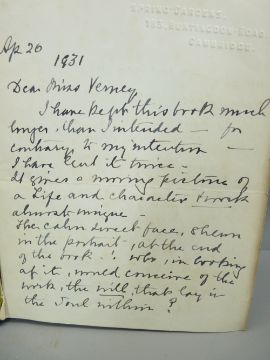 SPRING GARDENS,
HUNTINGDON ROAD,
CAMBRIDGE.
Ap. 26
1931
Dear Miss Verney,
I have kept this book much
longer than I intended — for
contrary to my intention —
I have lent it twice —
It gives a moving picture of
a Life and character & work
almost unique —
The calm direct face, shewn
in the portrait, at the end
of the book! who, in looking
at it, would conceive of the
work, the will, that lay in
the Soul within?